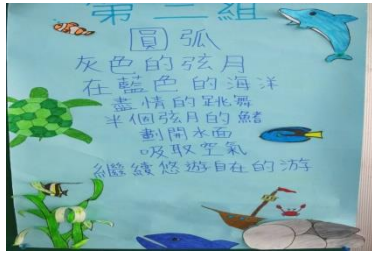 第二組
圓弧
灰色的弦月
在藍色的海洋
盡情的跳舞
半個弦月的鰭
劃開水面
吸取空氣
繼續悠遊自在的游